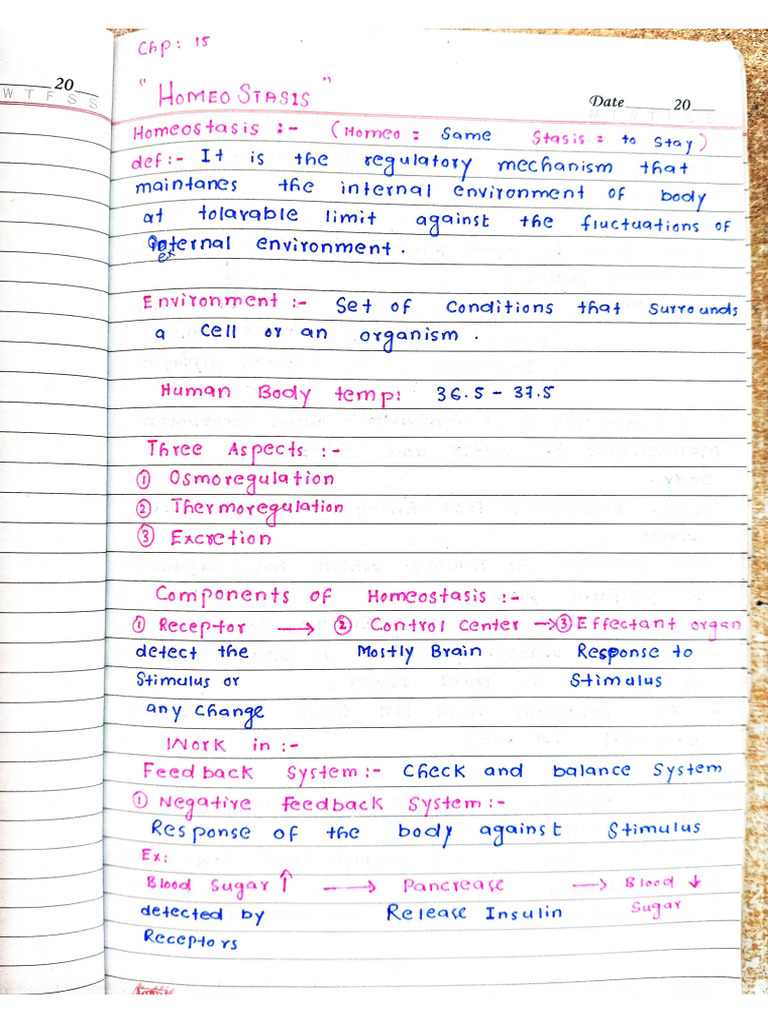 Chp: 15
20
W T F S S
" HOMEOSTASIS "
Date 20
Homeostasis :- (Homeo = Same Stasis = to Stay)
def:- It is the regulatory mechanism that
maintanes the internal environment of body
at tolavable limit against the fluctuations of
external environment.
Environment :- Set of Conditions that Surrounds
a Cell or an organism.
Human Body temp: 36.5 - 37.5
Three Aspects :-
① Osmoregulation
② Thermoregulation
③ Excretion
Components of Homeostasis :-
① Receptor → ② Control Center → ③ Effectant organ
detect the Mostly Brain Response to
Stimulus or Stimulus
any change
Work in :-
Feedback System :- Check and balance System
① Negative Feedback System :-
Response of the body against Stimulus
Ex:
Blood Sugar ↑ → Pancrease → Blood ↓
detected by Release Insulin Sugar
Receptors